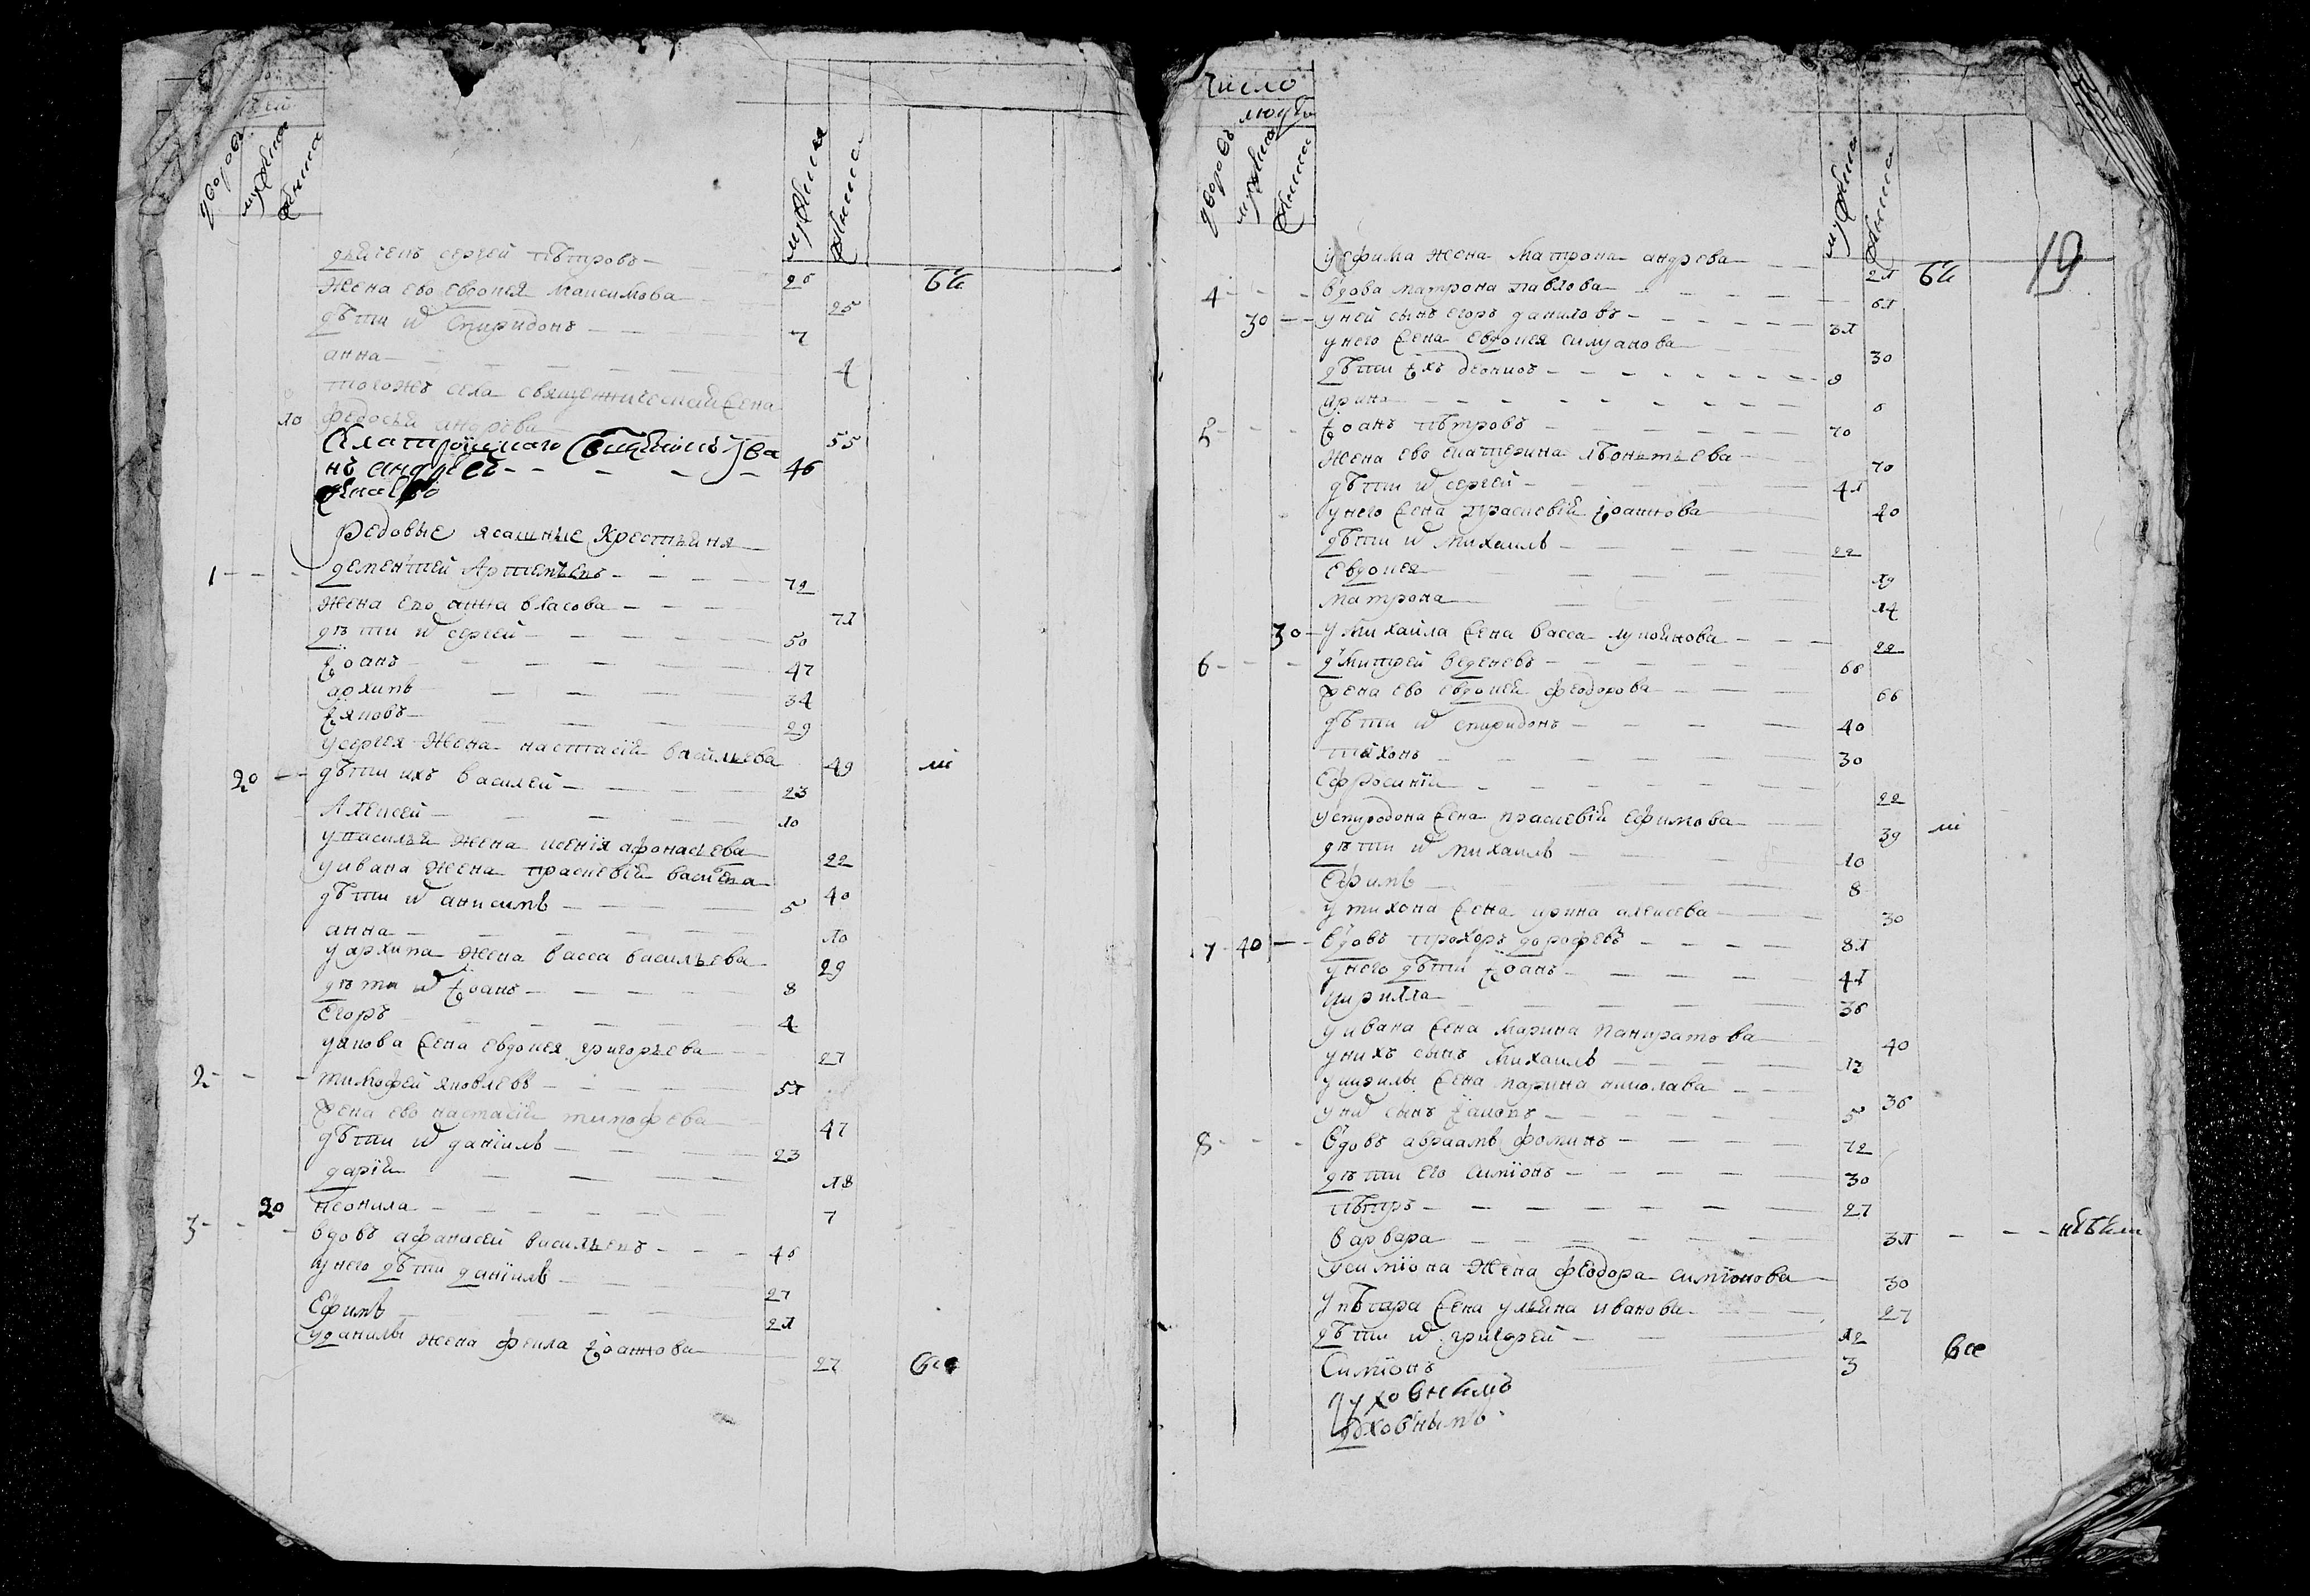 дворовъ
мужеска
женска
мужеска
женска
дьячекъ сергей пѣтровъ 26 бы
жена ево евдокея максимова 25
дѣти и спиридонъ 7
анна 4
тогожъ села священническая жена
10 федосья андрѣева 55
нъ андрѣевъ 46
Редовые ясашные крестьяня
1 дементей Артемьевъ 72
жена ево анна власова 71
дѣти и сергей 50
Іоанъ 47
архипъ 34
Іяковъ 29
усергея жена настасія васильева 49 ли
20 дѣти ихъ василей 23
Алексей 10
увасилья жена ксенія афонасева 22
уивана жена прасковія васиева 40
дѣти и анисимъ 5
анна 10
уархипа жена васса васильева 29
дѣти и Іоанъ 8
Егоръ 4
уякова жена евдокея григорьева 27
2 тимофей яковлевъ 51
жена ево настасія тимофева 47
дѣти и даніилъ 23
дарія 18
20 неонила 7
3 вдовъ афанасей васильевъ 46
унего дѣти даніилъ 27
Ефимъ 21
уданилы жена фекла Іоаннова 27 все
число
людей
дворовъ
мужеска
женска
мужеска
женска
19
уефима жена матрона андрева 21 бы
4 вдова матрона павлова 61
30 уней сынъ егоръ даниловъ 31
унего жена евдокея силуанова 30
дѣти ихъ деонисъ 9
арина 6
5 Іоанъ пѣтровъ 70
жена ево екатерина лѣонтьева 70
дѣти и сергей 41
унего жена прасковія Іоаннова 40
дѣти и михаилъ 22
евдокея 19
матрона 14
30 умихаила жена васса лукоянова 22
6 дмитрей веденевъ 66
жена ево евдокея феодорова 66
дѣти и спиридонъ 40
тихонъ 30
Ефросинія 22
успиридона жена прасковія ефимова 39 ли
дѣти и михаилъ 10
Ефимъ 8
утихона жена ирина алексева 30
7 40 вдовъ прохоръ дорофевъ 81
унего дѣти Іоанъ 41
кирилла 36
уивана жена марина панкратова 40
унихъ сынъ михаилъ 13
укирилы жена марина николава 36
уни сынъ Іаковъ 5
8 вдовъ авраамъ фоминъ 72
дѣти его симіонъ 30
пѣтръ 27
варвара 31 небыла
усимиона жена феодора симіонова 30
упѣтра жена ульяна иванова 27
дѣти и григорей 12
Симіонъ 3 все
духовнымъ
духовнымъ